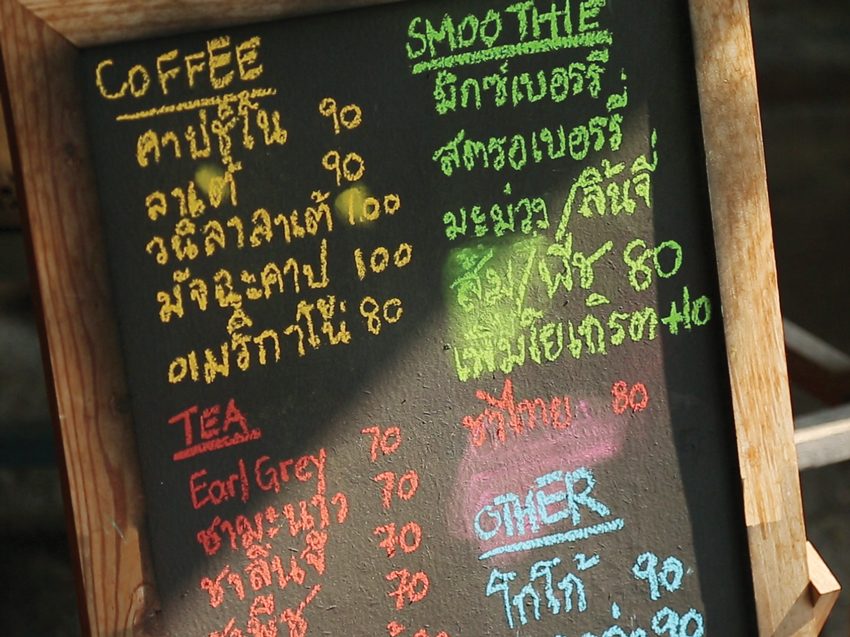 COFFEE
คาปูชิโน 90
ลาเต้ 90
วนิลาลาเต้ 100
มัจฉะคาปู 100
อเมริกาโน่ 80
TEA
Earl Grey 70
ชามะนาว 70
ชาลิ้นจี่ 70
ชาพีช 70
SMOOTHIE
มิกซ์เบอร์รี่
สตรอเบอร์รี่
มะม่วง/ลิ้นจี่
ส้ม/พีช 80
เพิ่มโยเกิรต +10
ชาไทย 80
OTHER
โกโก้ 90
90